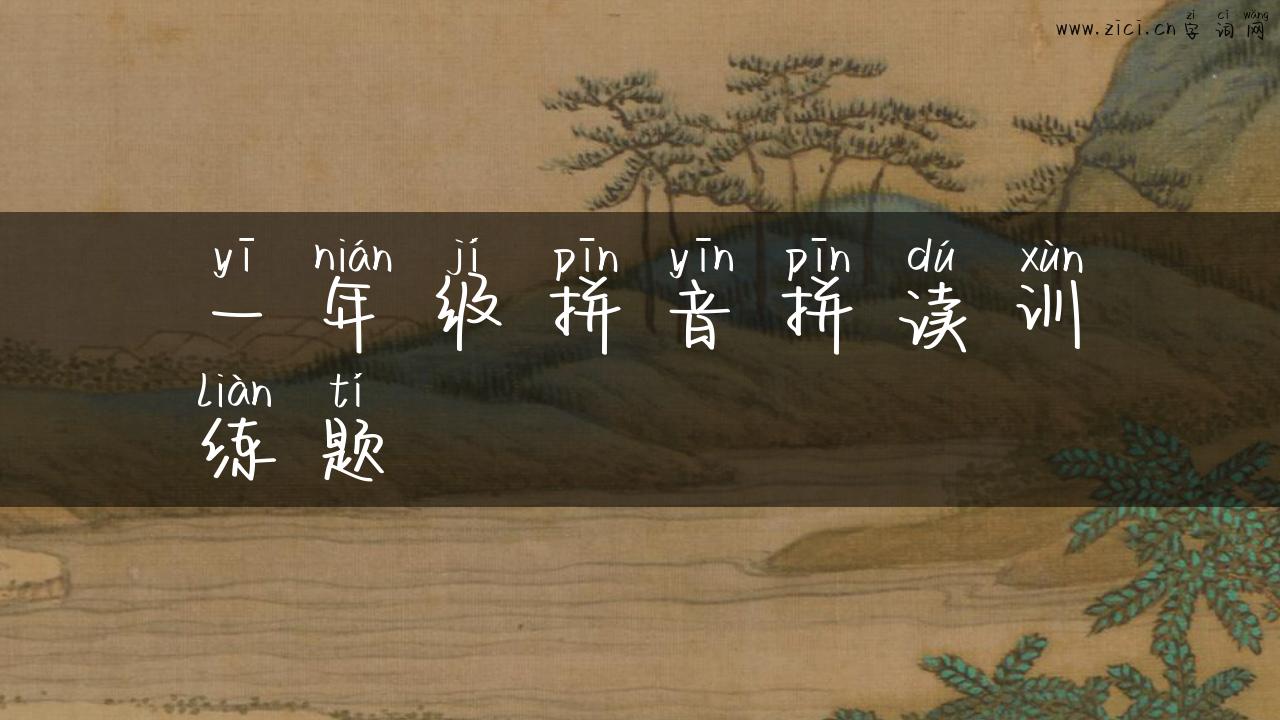 zì cí wǎng
www.zici.cn 字词网
yī nián jí pīn yīn pīn dú xùn
一年级拼音拼读训
liàn tí
练题